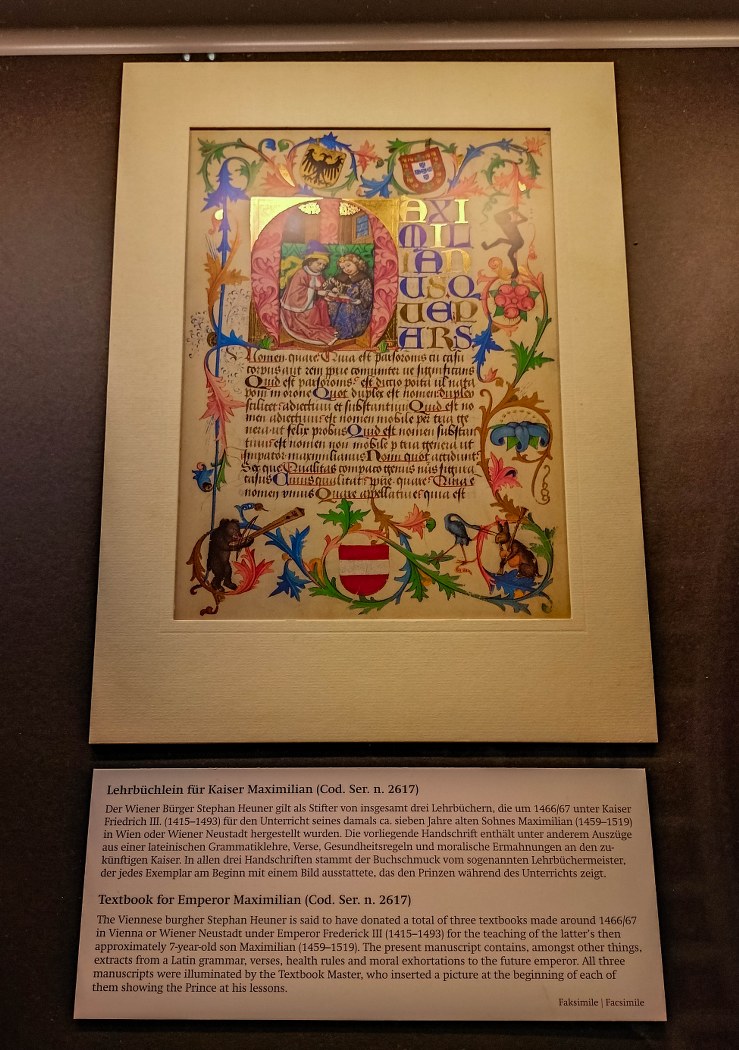 AXI
MIL
IAN
USQ
UEP
ARS
Nomen quare Quia est pars oronis cu casu
corpus aut rem pprie comuniter ue significans
Quid est pars oronis est dictio
in orone Quot duplex est nomen duplex
scilicet adiectiuu et substantiuu Quid est no
men adiectiuu est nomen mobile
felix probus Quid est nomen substan
tiuu est nomen non mobile p tria genera ut
Impator maximilianus Nomi quot accidunt
Sex que Qualitas compacio genus nus figura
casus Cuius qualitat quare
nomen Quare appellatiue quia est
Lehrbüchlein für Kaiser Maximilian (Cod. Ser. n. 2617)
Der Wiener Bürger Stephan Heuner gilt als Stifter von insgesamt drei Lehrbüchern, die um 1466/67 unter Kaiser
Friedrich III. (1415–1493) für den Unterricht seines damals ca. sieben Jahre alten Sohnes Maximilian (1459–1519)
in Wien oder Wiener Neustadt hergestellt wurden. Die vorliegende Handschrift enthält unter anderem Auszüge
aus einer lateinischen Grammatiklehre, Verse, Gesundheitsregeln und moralische Ermahnungen an den zu-
künftigen Kaiser. In allen drei Handschriften stammt der Buchschmuck vom sogenannten Lehrbüchermeister,
der jedes Exemplar am Beginn mit einem Bild ausstattete, das den Prinzen während des Unterrichts zeigt.
Textbook for Emperor Maximilian (Cod. Ser. n. 2617)
The Viennese burgher Stephan Heuner is said to have donated a total of three textbooks made around 1466/67
in Vienna or Wiener Neustadt under Emperor Frederick III (1415–1493) for the teaching of the latter's then
approximately 7-year-old son Maximilian (1459–1519). The present manuscript contains, amongst other things,
extracts from a Latin grammar, verses, health rules and moral exhortations to the future emperor. All three
manuscripts were illuminated by the Textbook Master, who inserted a picture at the beginning of each of
them showing the Prince at his lessons.
Faksimile | Facsimile